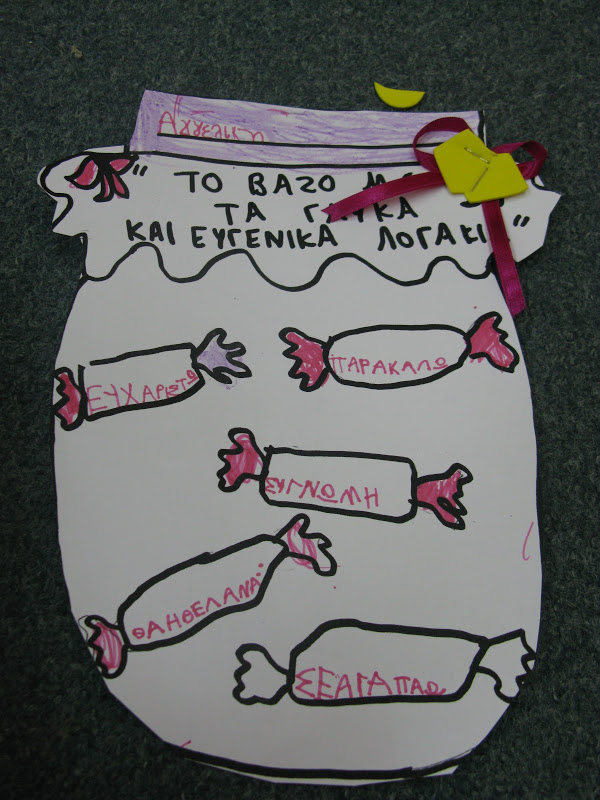 " ΤΟ ΒΑΖΟ ΜΕ
ΤΑ ΓΛΥΚΑ
ΚΑΙ ΕΥΓΕΝΙΚΑ ΛΟΓΑΚΙΑ "
ΕΥΧΑΡΙΣΤΩ
ΠΑΡΑΚΑΛΩ
ΣΥΓΝΩΜΗ
ΘΑΗΘΕΛΑΝΑ
ΣΕΑΓΑΠΑΩ